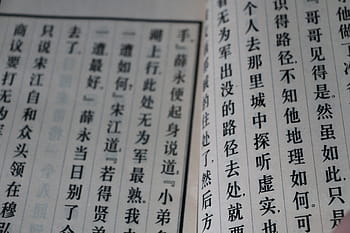 『哥哥见得是。然虽如此,只是
识得路径。不知他地理如何。可
个人去那里城中探听虚实,也
有无为军出没的路径去处,就要
贼的住处了,然后方
手。』薛永便起身说道:『小弟多
湖上行,此处无为军最熟。我去
一遭如何?』宋江道:『若得贤弟
一遭最好。』薛永当日别了众
去了。
只说宋江自和众头领在穆弘
商议要打无为军